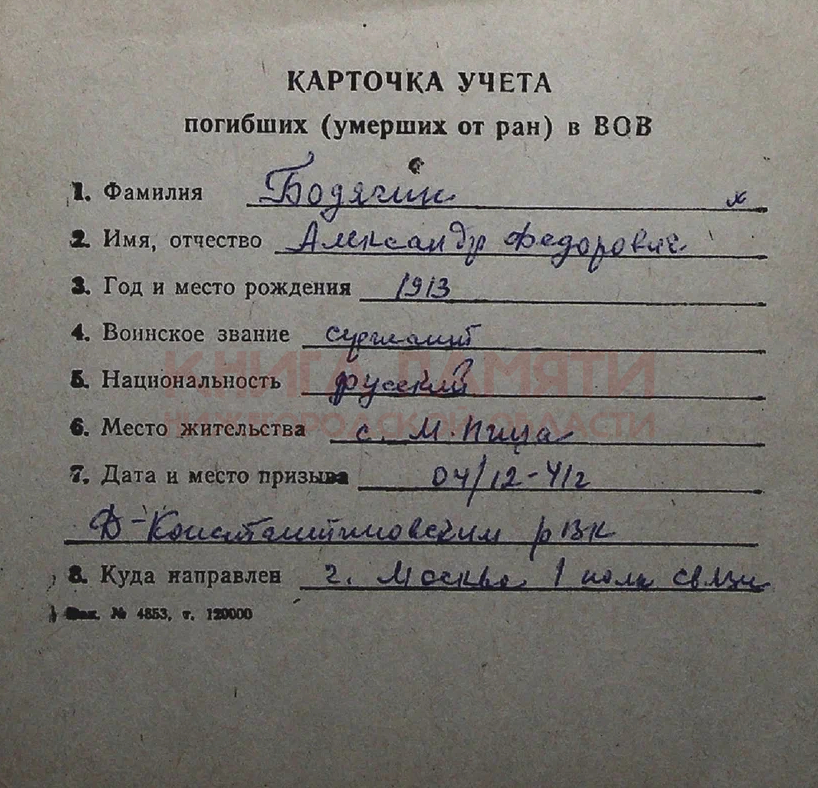 КАРТОЧКА УЧЕТА
погибших (умерших от ран) в ВОВ
1. Фамилия Бодягин
2. Имя, отчество Александр Федорович
3. Год и место рождения 1913
4. Воинское звание сержант
5. Национальность русский
КНИГА ПАМЯТИ
НИЖЕГОРОДСКОЙ ОБЛАСТИ
6. Место жительства с. М. Пица
7. Дата и место призыва 04/12-41г
Д-Константиновским рВК
8. Куда направлен г. Москва 1 полк связи
Зак. № 4853, т. 120000